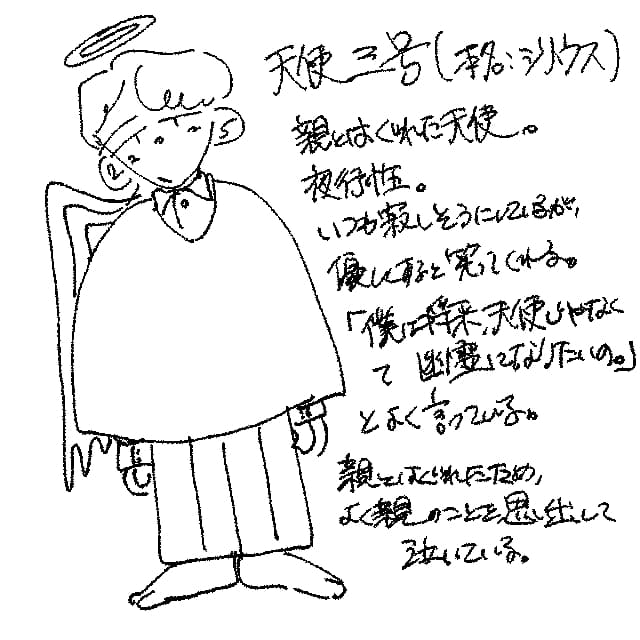 天使三号(本名:シリウス)
親とはぐれた天使。
夜行性。
いつも寂しそうにしているが、
優しくすると笑ってくれる。
「僕は将来、天使じゃなく
て幽霊になりたいの。」
とよく言っている。
親とはぐれたため、
よく親のことを思い出して
泣いている。